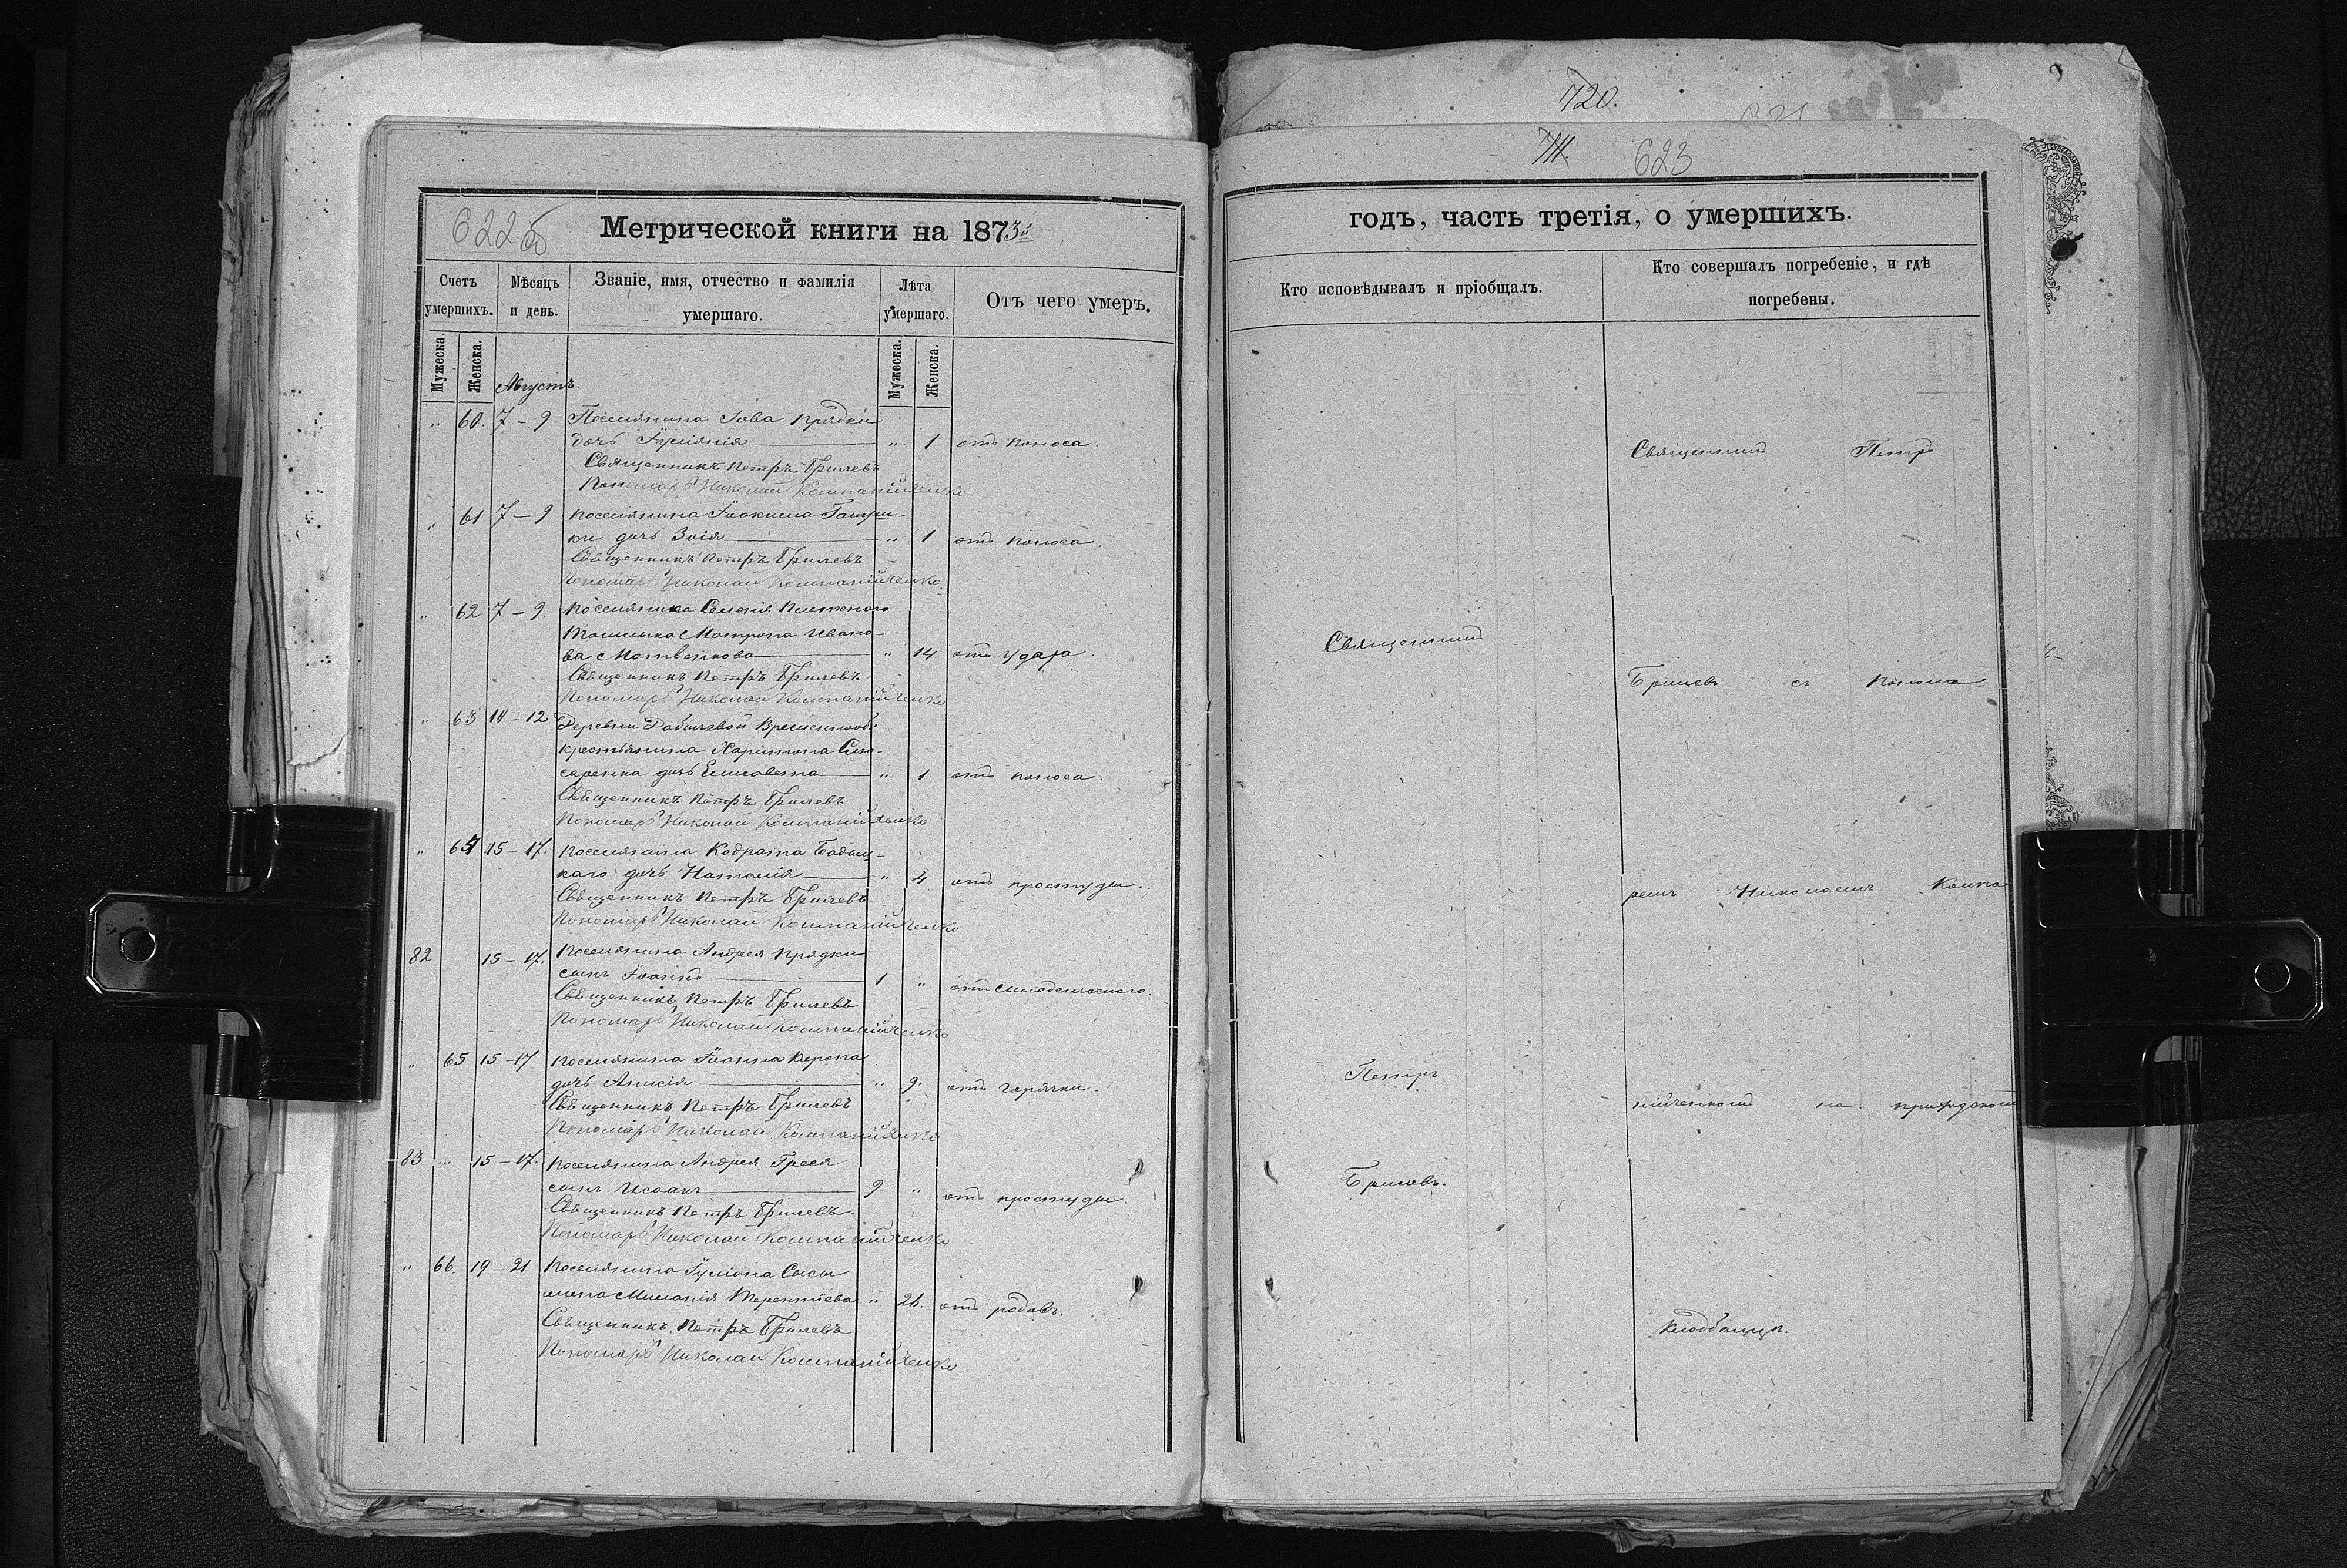 622об
Метрической книги на 1873й
Счетъ умершихъ.
Мѣсяцъ и день.
Званіе, имя, отчество и фамилія умершаго.
Лѣта умершаго.
Отъ чего умеръ.
Мужеска.
Женска.
Августъ.
Мужеска.
Женска.
" 60. 7 – 9 Поселянина Іова Прядки
дочь Іуліянія " 1 отъ поноса.
Священникъ Петръ Брилевъ
Пономарь Николай Компанійченко
" 61 7 – 9 Поселянина Іоакима
ки дочь Зоія " 1 отъ поноса.
Священникъ Петръ Брилевъ
Пономарь Николай Компанійченко
" 62 7 – 9. Поселянина
Матрона Ивано-
ва Матвейкова " 14 отъ удара.
Священникъ Петръ Брилевъ
Пономарь Николай Компанійченко
" 63 10 – 12 Деревни
крестьянина Харитона Слю-
саренка дочь Елисавета " 1 отъ поноса.
Священникъ Петръ Брилевъ
Пономарь Николай Компанійченко
" 64 15 – 17. Поселянина Кодрата
каго дочь Наталія " 4 отъ простуды.
Священникъ Петръ Брилевъ
Пономарь Николай Компанійченко
82 15 – 17. Поселянина Андрея Прядки
сынъ Іоаннъ 1 " отъ младенческаго.
Священникъ Петръ Брилевъ
Пономарь Николай Компанійченко
" 65 15 – 17 Поселянина Іоанна
дочь Анисія " 9. отъ горячки.
Священникъ Петръ Брилевъ
Пономарь Николай Компанійченко
83 " 15 – 17. Поселянина Андрея
сынъ Исаакъ 9 " отъ простуды.
Священникъ Петръ Брилевъ
Пономарь Николай Компанійченко
" 66. 19 – 21 Поселянина Сысы
жена Меланія Терентіева " 24. отъ родовъ.
Священникъ Петръ Брилевъ
Пономарь Николай Компанійченко
720.
623
годъ, часть третія, о умершихъ.
Кто исповѣдывалъ и пріобщалъ.
Кто совершалъ погребеніе, и гдѣ погребены.
Священникъ
Петръ
Брилевъ.
Священникъ Петръ
Брилевъ съ понома-
ремъ Николаемъ Компа
нійченкомъ на приходскомъ
кладбищѣ.